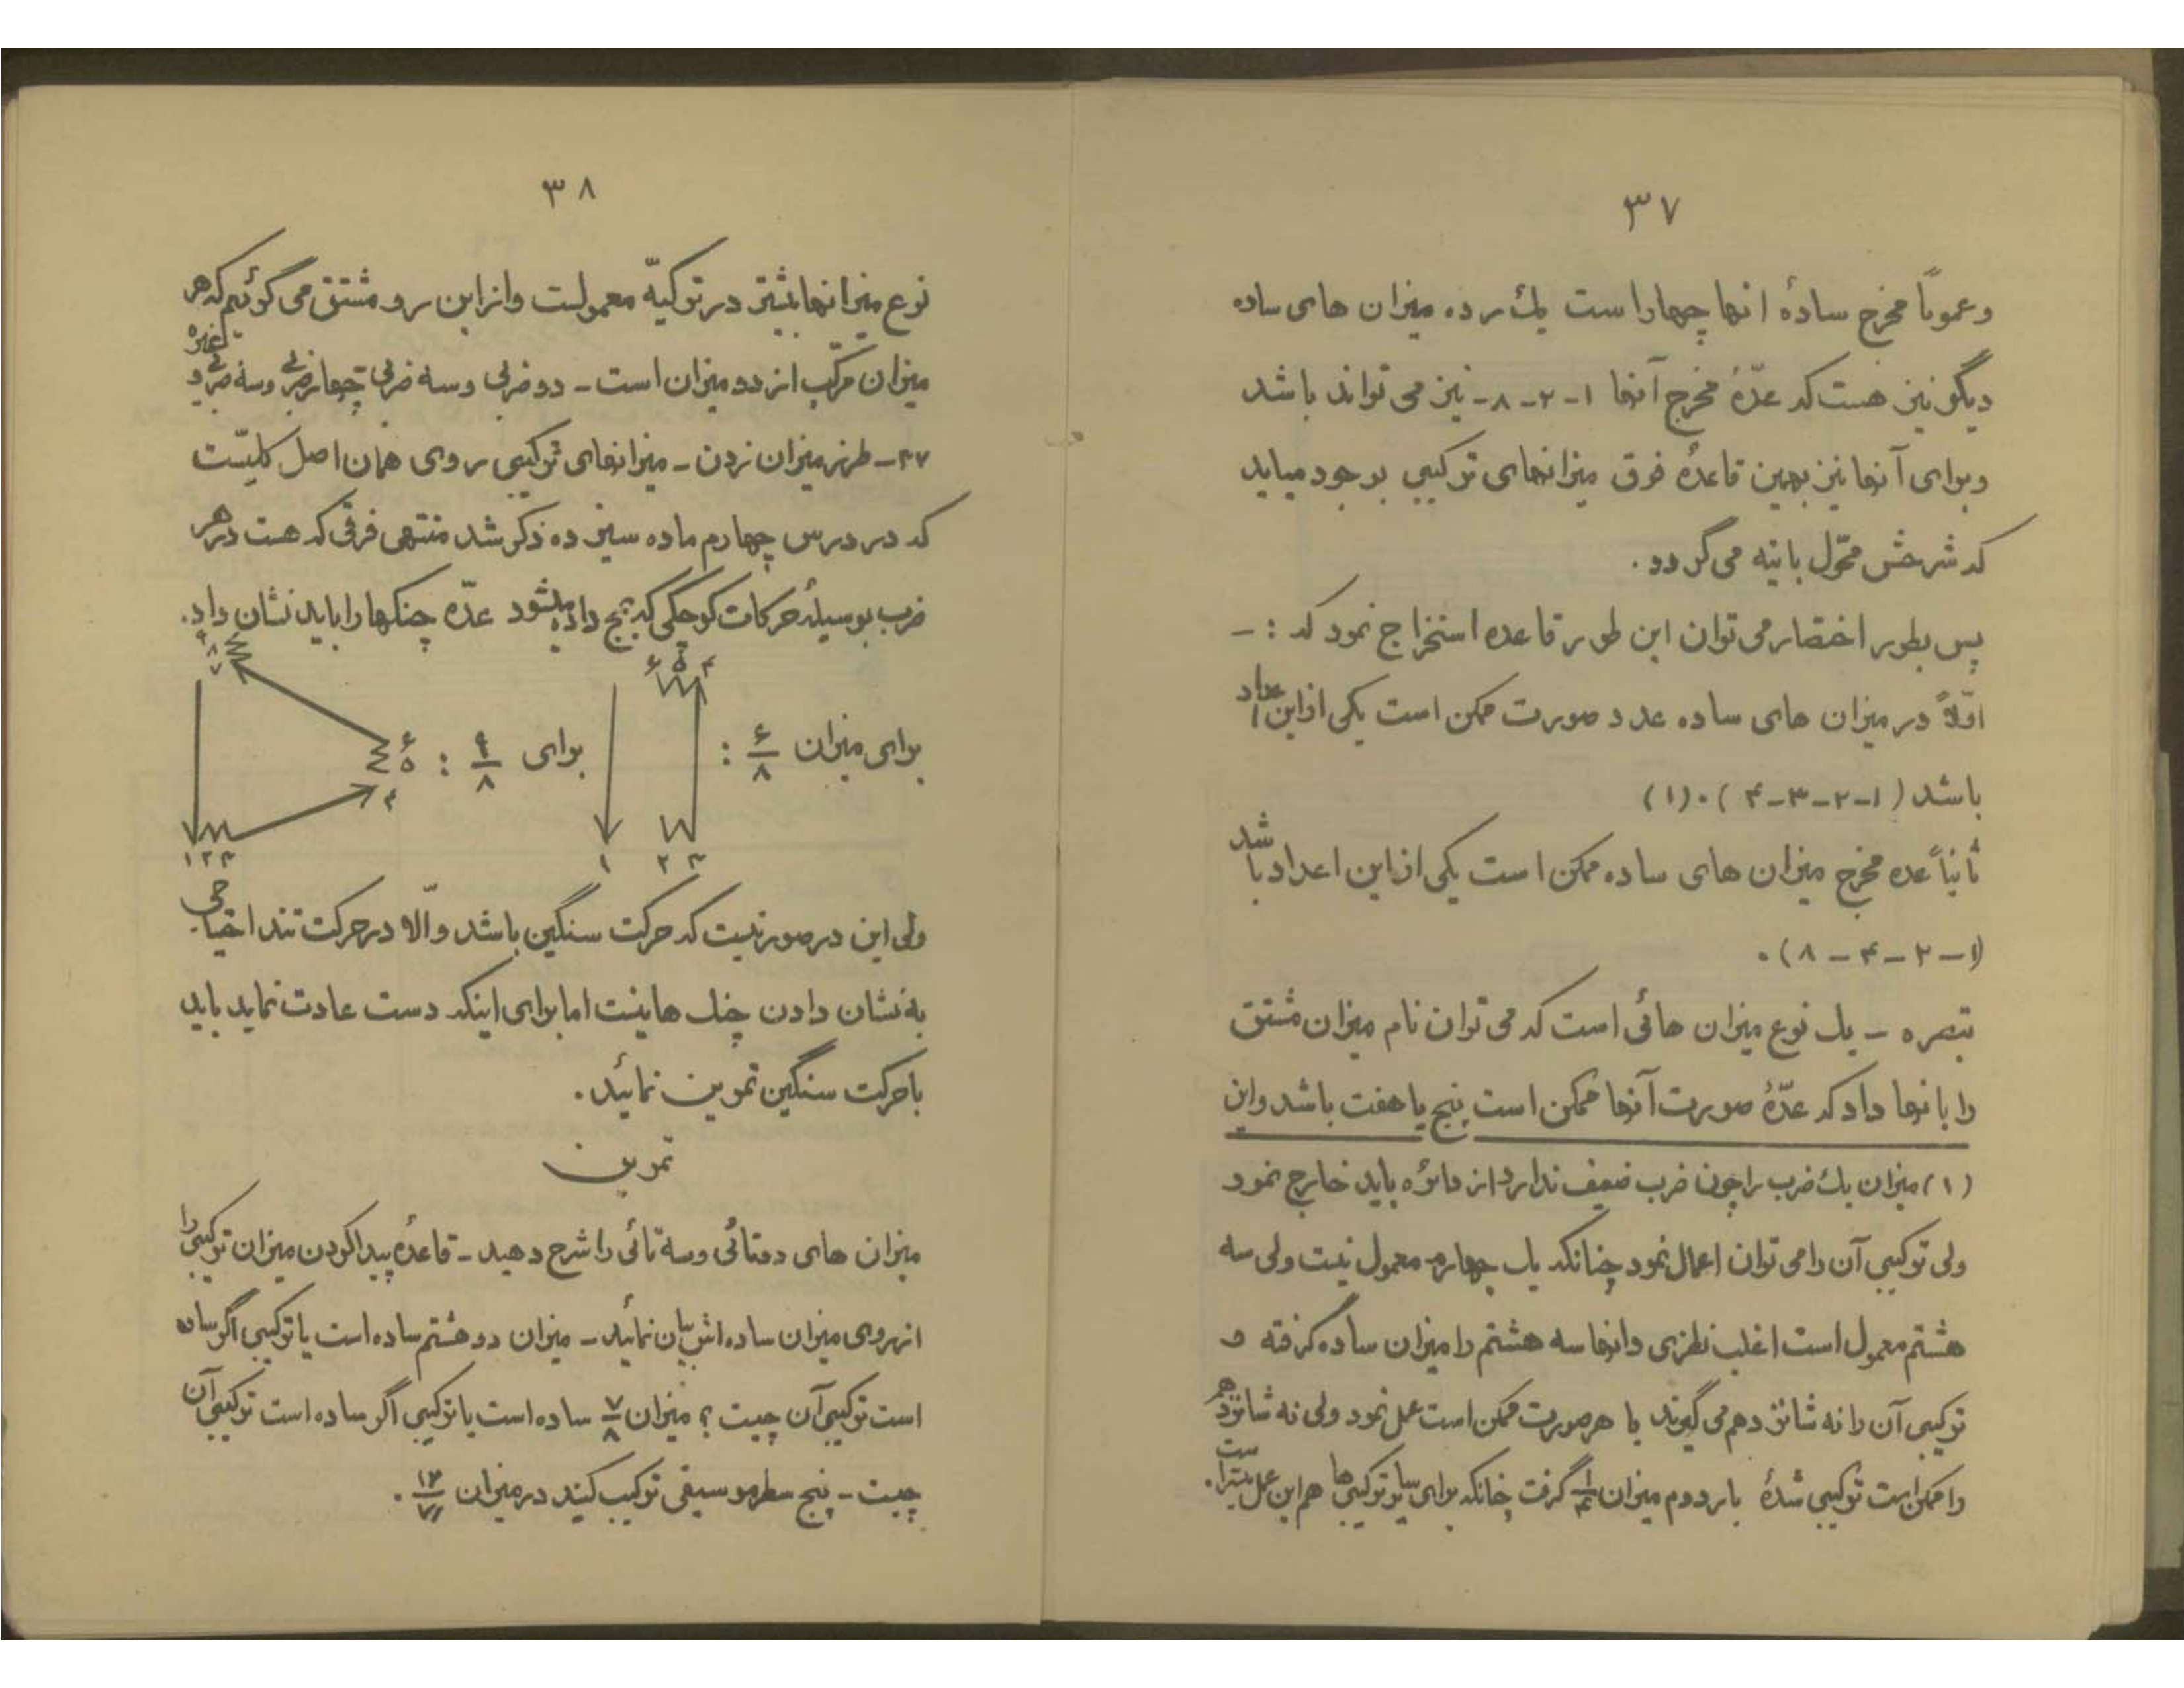 ۳۷
وعموماً مخرج سادهٔ انها چهاراست یك رده میزان های ساده
دیگر نیز هست که عدّهٔ مخرج آنها ۱-۲-۸- نیز می تواند باشد
وبرای آنها نیز بهمین قاعدهٔ فوق میزانهای ترکیبی بوجود میاید
که شرحش محوّل باتیه می گردد.
پس بطور اختصار می توان این طور قاعده استخراج نمود که :-
اوّلاً در میزان های ساده عدد صورت ممکن است یکی ازاین اعداد
باشد (۱-۲-۳-۴).(۱)
ثانیاً عده مخرج میزان های ساده ممکن است یکی ازاین اعداد باشد
(۱-۲-۴-۸).
تبصره - یك نوع میزان هائی است که می توان نام میزان مشتق
را بانها داد که عدّهٔ صورت آنها ممکن است پنج یا هفت باشد واین
(۱) میزان یك ضرب را چون ضرب ضعیف ندارد از دائره باید خارج نمود
ولی ترکیبی آن را می توان اعمال نمود چنانکه یك چهارم معمول نیست ولی سه
هشتم معمول است اغلب نظری دانها سه هشتم را میزان ساده گرفته و
ترکیبی آن را نه شانزدهم می گیرند با هرصورت ممکن است عمل نمود ولی نه شانزدهم
را ممکن است ترکیبی شدهٔ بار دوم میزان ۱/۴ گرفت چنانکه برای سایر ترکیبی ها هم این عمل میسراست.
۳۸
نوع میزانها بیشتر در ترکیّه معمولست وازاین رو مشتق می گوئیم که هر
میزان مرکّب از دو میزان است - دو ضربی وسه ضربی چهارضربی وسه ضربی وغیره
۴۷- طرز میزان زدن - میزانهای ترکیبی روی همان اصل کلیّست
که در درس چهارم ماده سیزده ذکر شد منتهی فرقی که هست درهر
ضرب بوسیلهٔ حرکات کوچکی که بمچ داده میشود عدّه چنگها را باید نشان داد.
برای میزان ۶/۸ :
۴ ۵ ۶
۱ ۲ ۳
برای ۹/۸ :
۷ ۸ ۹
۴ ۵ ۶
۱ ۲ ۳
ولی این درصورتیست که حرکت سنگین باشد والّا درحرکت تند احتیاجی
به نشان دادن چنك ها نیست اما برای اینکه دست عادت نماید باید
باحرکت سنگین تمرین نمائید.
تمرین
میزان های دوتائی وسه تائی را شرح دهید - قاعدهٔ پیداکردن میزان ترکیبی را
ازروی میزان ساده اش بیان نمائید - میزان دو هشتم ساده است یا ترکیبی اگرساده
است ترکیبی آن چیست ؟ میزان ۷/۸ ساده است یا ترکیبی اگر ساده است ترکیبی آن
چیست - پنج سطر موسیقی ترکیب کنید درمیزان